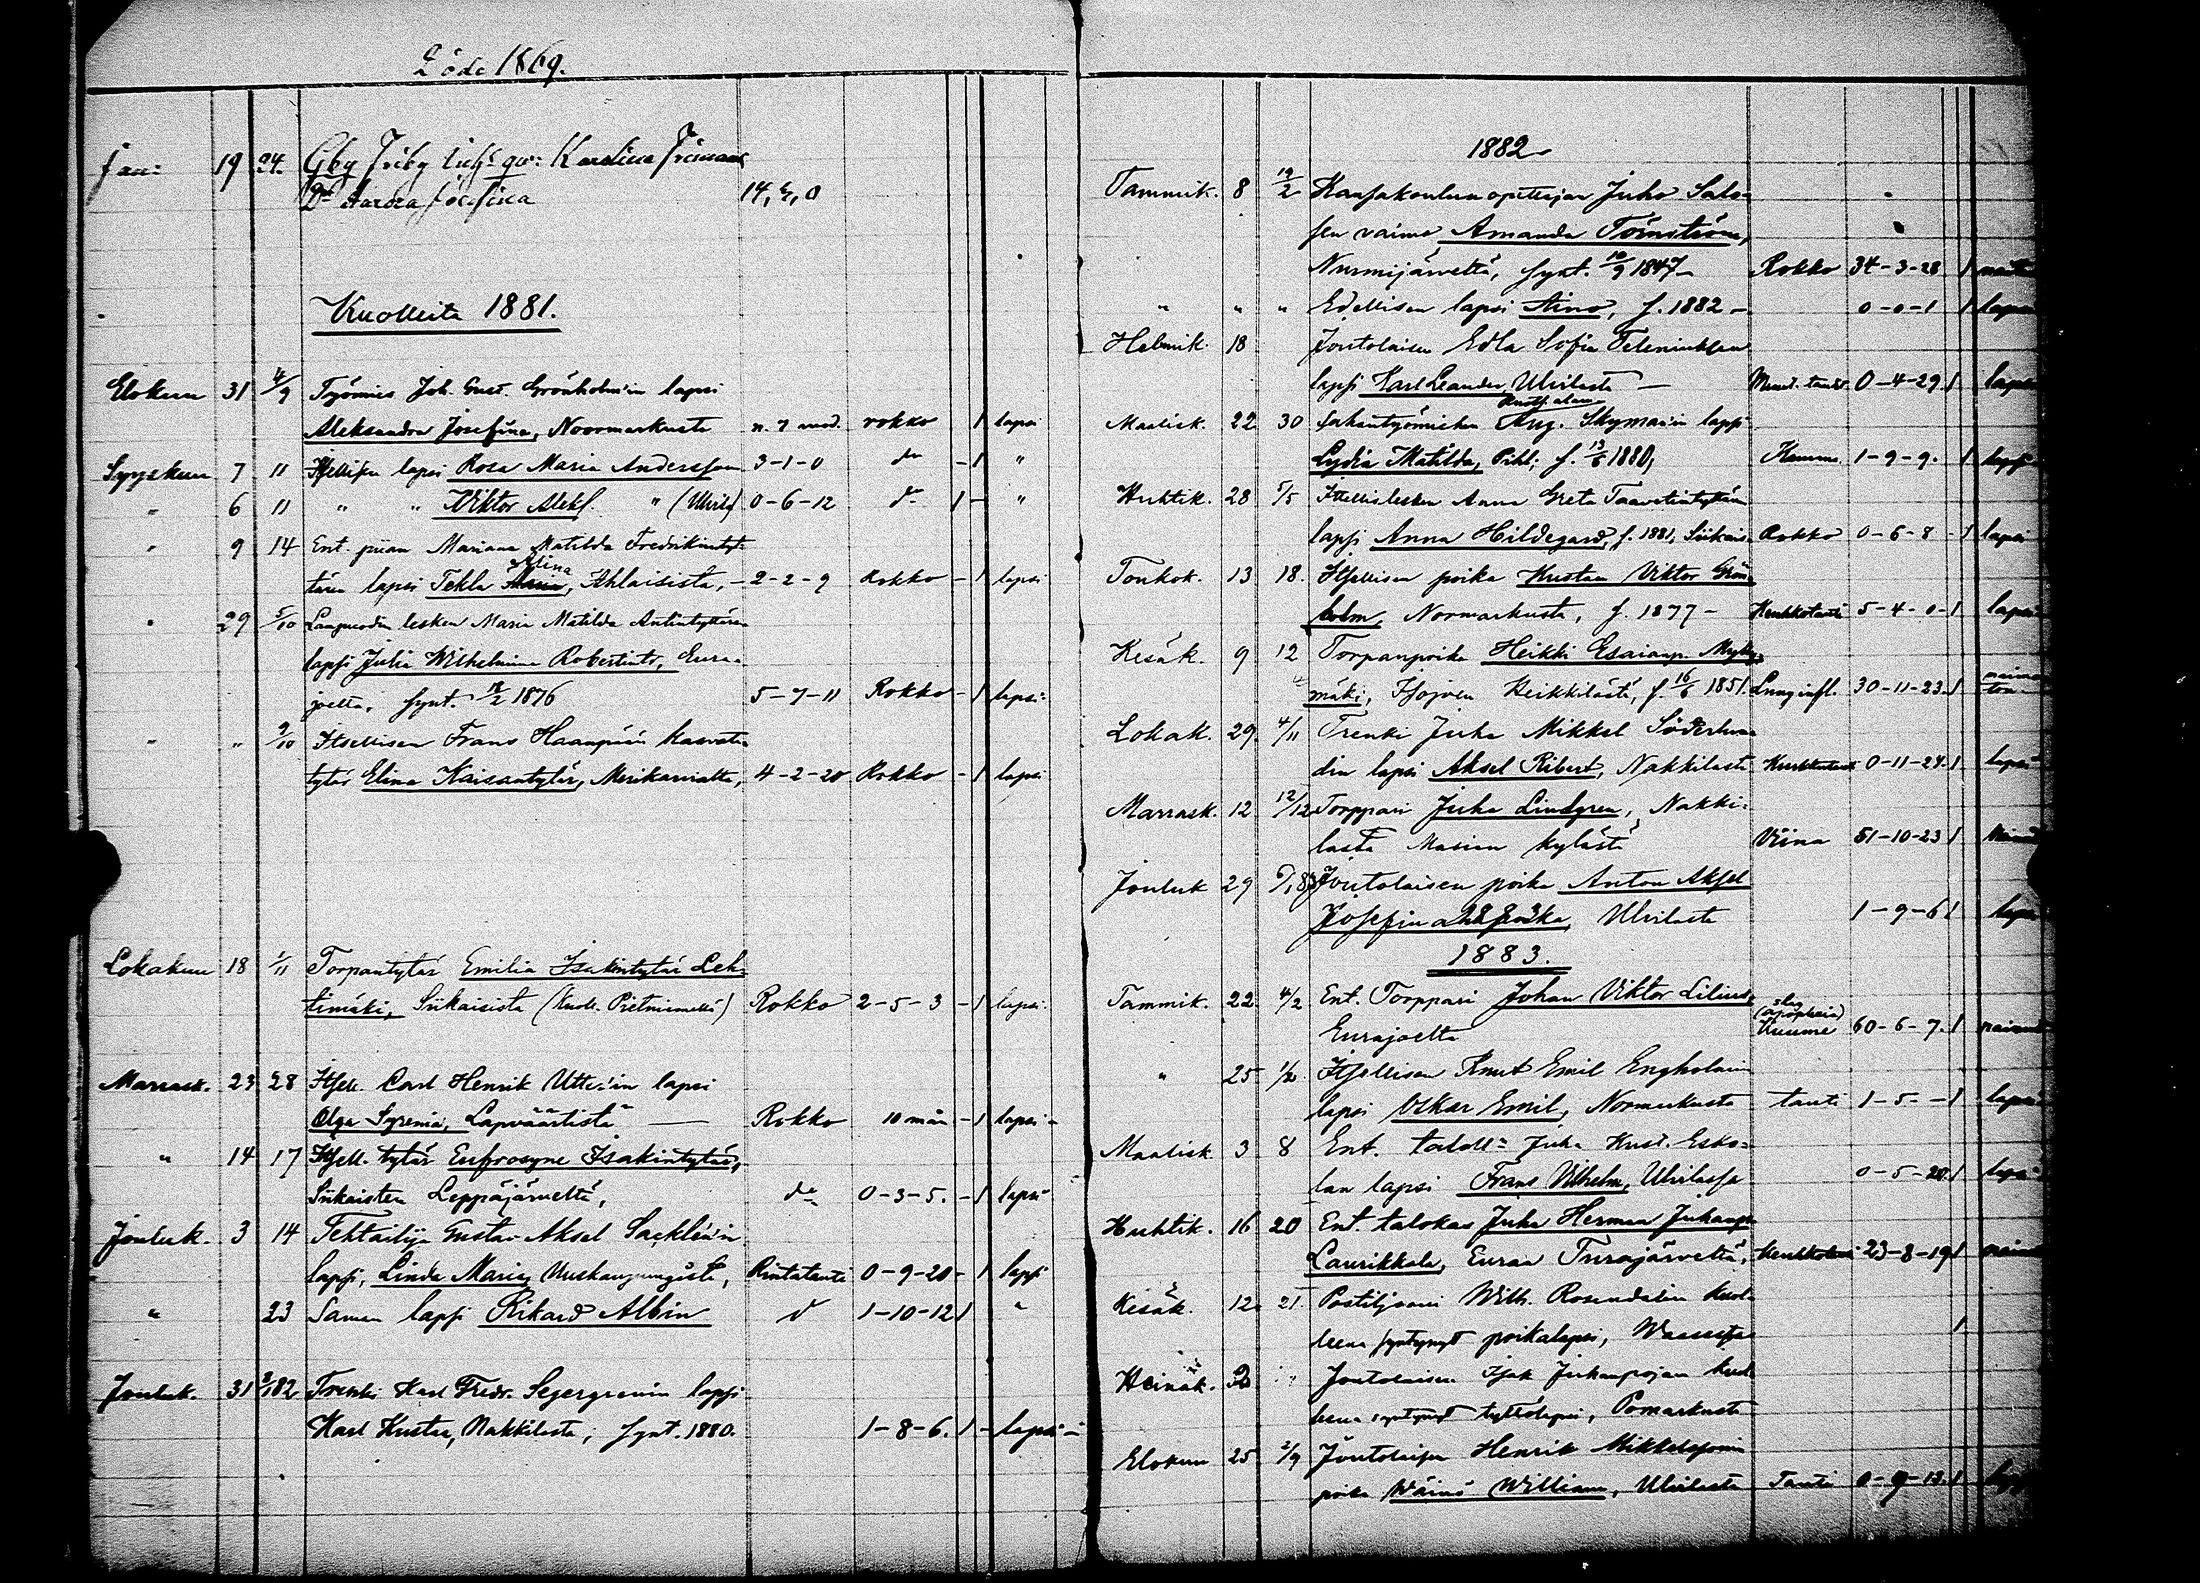 Döde 1869.
Jan: 19 24.
Dr Aurora Josefina 14, 2, 0
Kuolleita 1881.
Elokuu 31 4/9 Työmies Joh. Gust. Grönholm'in lapsi
Aleksandra Josefina, Noormarkusta rokko 1 lapsi
Syyskuu 7 11 Itsellisen lapsi Rosa Maria Andersson 3-1-0 do - 1 "
" 6 11 " " Viktor Aleks. " (Ulvila) 0-6-12 do 1 - "
" 9 14 Ent. piian Mariana Matilda Fredrikintyt-
Alina
tären lapsi Tekla Maria, Ahlaisista, - 2-2-9 Rokko - 1 lapsi
" 29 5/10 lesken Maria Matilda Antintyttären
lapsi Julia Wilhelmina Robertint., Eura-
joelta, synt. 18/2 1876 5-7-11 Rokko - 1 lapsi
" " 9/10 Itsellisen Frans Haanpään kasvatti
tytär Elina Kaisantytär, Merikarvialta, 4-2-20 Rokko - 1 lapsi
Lokakuu 18 1/11 Torpantytär Emilia Isakintytär Leh-
timäki, Siikaisista (kuoll. Pietniemellä) Rokko 2-5-3 - 1 lapsi
Marrask. 23 28 Itsell. Carl Henrik Utter'in lapsi
Olga Syrenia, Lapväärtistä — Rokko 10 mån - 1 lapsi
" 14 17 Itsell. tytär Eufrosyne Isakintytär,
Siikaisten Leppäjärveltä, do 0-3-5. - 1 lapsi
Jouluk. 3 14 Tehtailija Gustav Aksel Sacklén'in
lapsi, Linda Maria, Uuskaupungista, Rintatauti 0-9-20 - 1 lapsi
" 23 Saman lapsi Rikard Albin do 1-10-12 1 "
Jouluk. 31 3/1 82 Trenki Karl Fredr. Segergrenin lapsi
Karl Kustaa, Nakkilasta, synt. 1880. 1-8-6. 1 - lapsi
1882
Tammik. 8 19/2 Kansakoulun opettajan Juho Salo-
sen vaimo Amanda Törnström,
Nurmijärveltä, synt. 10/9 1847 - Rokko 34-3-28 1
" " " Edellisen lapsi Aino, s. 1882 - 0-0-1 1 lapsi
Helmik. 18 Joutolaisen Edla Sofia
lapsi Karl Leander, Ulvilasta — 0-4-29 1 lapsi
Maalisk. 22 30 Sahantyömiehen Aug. Skyman'in lapsi
Lydia Matilda, Pihl., s. 13/6 1880, Kuume 1-9-9. 1 lapsi
Huhtik. 28 5/5 Itsellislesken Anna Greta Taavetintyttären
lapsi Anna Hildegard, s. 1881, Siikais. Rokko 0-6-8 - 1 lapsi
Toukok. 13 18. Itsellisen poika Kustaa Viktor Grön-
holm, Normarkusta, s. 1877 - Keuhkotauti 5-4-0-1 lapsi
Kesäk. 9 12 Torpanpoika Heikki Esaianp. Mylly-
mäki, Isojoen Heikkilästä, s. 16/6 1851. Lunginfl. 30-11-23. 1
Lokak. 29. 4/11 Trenki Juha Mikkel Söderlun-
din lapsi Aksel Ribert, Nakkilasta 0-11-24. 1 lapsi
Marrask. 12 12/12 Torppari Juha Lindgren, Nakki-
lasta Masian kylästä Viina 51-10-23 1
Jouluk 29 Joutolaisen poika Anton Aksel
Josefin Ulvilasta 1-9-6 1 lapsi
1883.
Tammik. 22 4/2 Ent. Torppari Johan Viktor Lilius,
Eurajoelta Kuume 60-6-7. 1
slag
" 25 Itsellisen Knut Emil Engholmin
lapsi Oskar Emil, Normarkusta tauti 1-5- - 1 lapsi
Maalisk 3 8 Ent. Juha Kust. Esko-
lan lapsi Frans Vilhelm, Ulvilassa 0-5-20. 1 lapsi
Huhtik. 16 20 Ent. talokas Juha Herman Juhanp.
Laurikkala, Euran Turajärveltä, 23-8-19 1
Kesäk. 12. 21. Postiljooni Wilh. Rosendalin kuol-
leena syntynyt poikalapsi, 1
Heinäk. 2 " Joutolaisen Isak Juhanpojan kuol-
leena syntynyt tyttölapsi, Pomarkusta
Elokuu 25 2/9 Joutolaisen Henrik Mikkelssonin
poika Wäinö William, Ulvilasta Tauti 0-9-13. 1